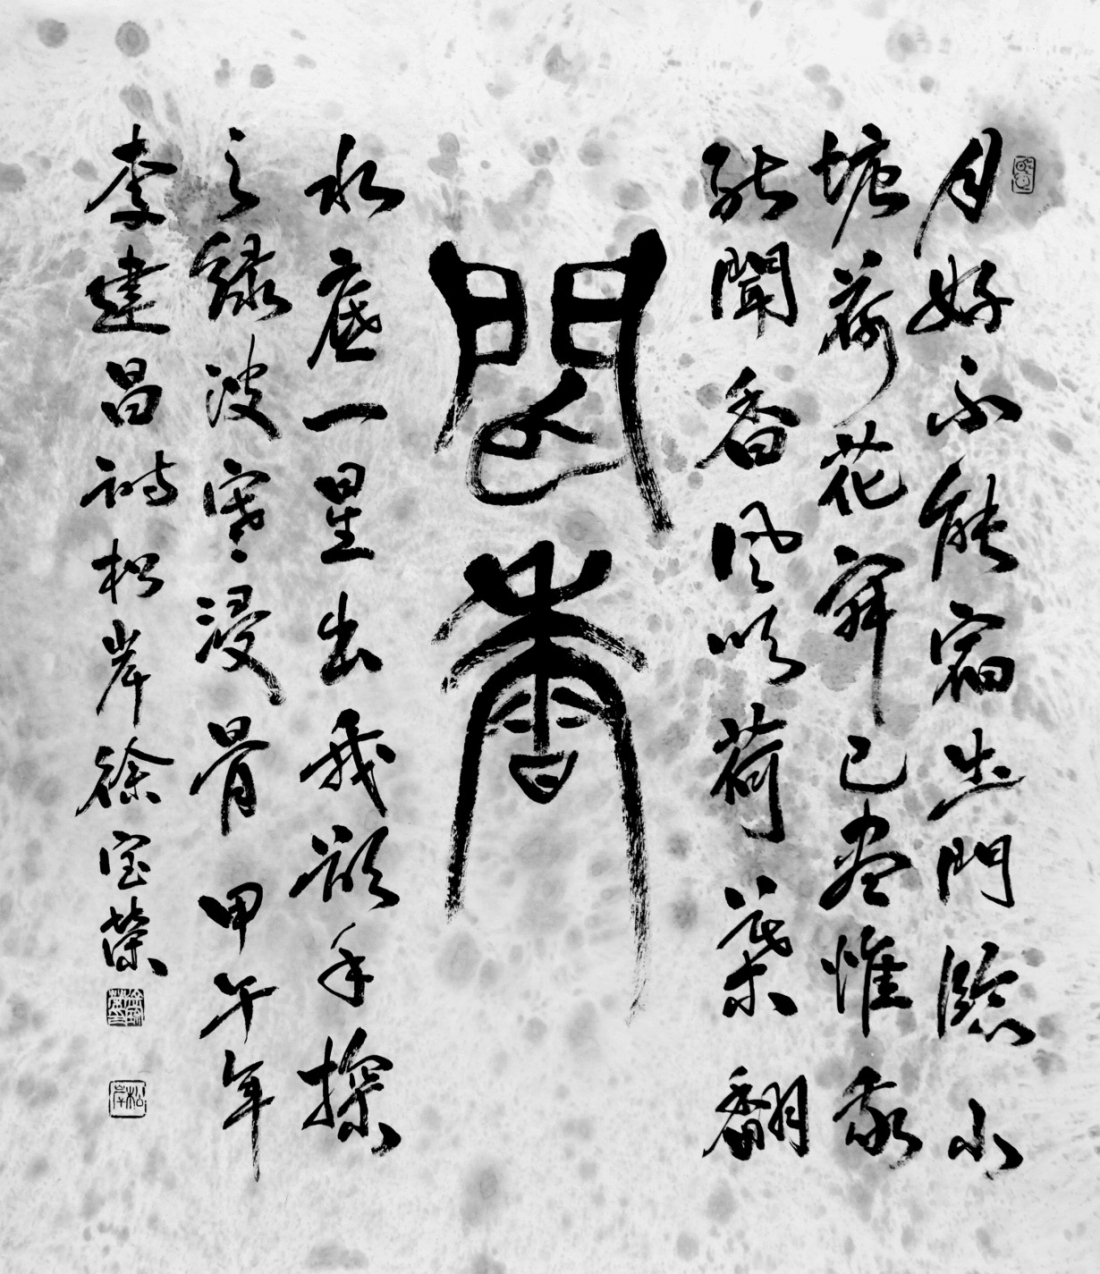 月好不能宿出門臨小
塘荷花寂已盡惟我
能聞香風吹荷葉翻
聞香
水底一星出我欲手探
之綠波寒浸骨 甲午年
李建昌詩松岸徐宝榮
松岸